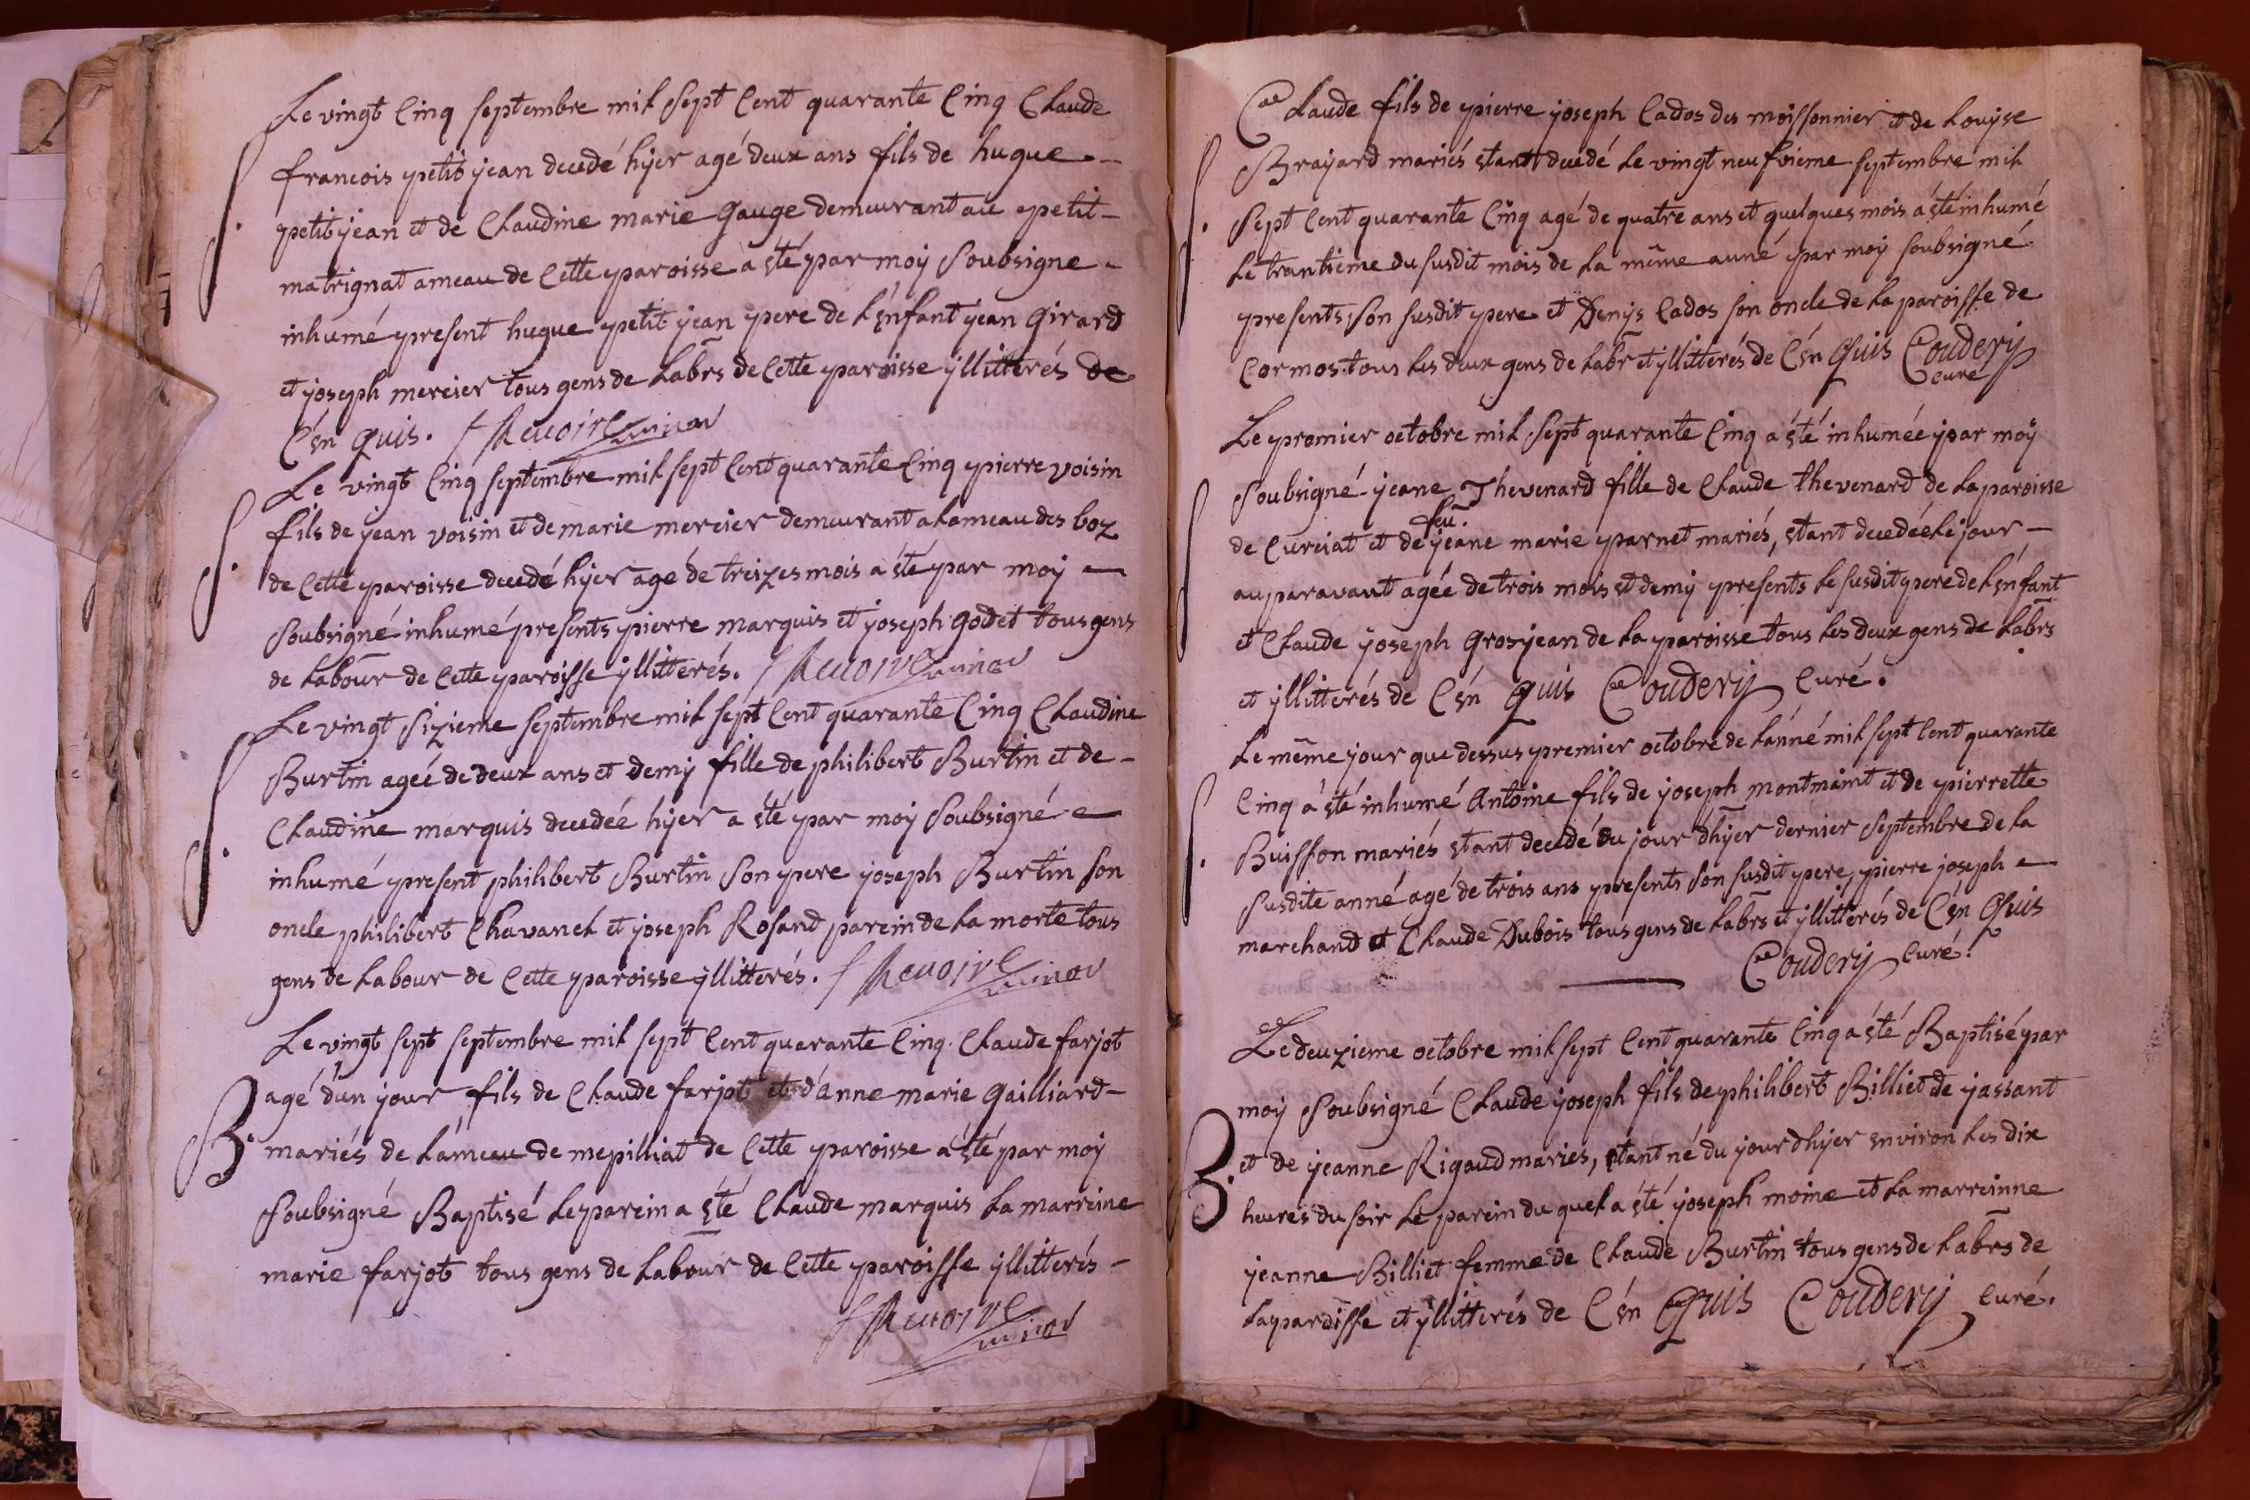 Le vingt cinq septembre mil sept cent quarante cinq Claude
S. francois petit jean decedé hyer agé deux ans fils de hugue
petit jean et de Claudine marie gauge demeurant au petit
matrignat ameau de cette paroisse a été par moy soubsigne
inhumé present hugue petit jean pere de l'énfant jean girard
et joseph mercier tous gens de labrs de cette paroisse yllitterés de
c'én quis.
Le vingt cinq septembre mil sept cent quarante cinq pierre voisin
S. fils de jean voisin et de marie mercier demeurant a lameau des boz
de cette paroisse decedé hyer agé de treizes mois a été par moy
soubsigné inhumé presents pierre marquis et joseph godet tous gens
de labour de cette paroisse yllitterés.
Le vingt sizieme septembre mil sept cent quarante cinq Claudine
S. Burtin agée de deux ans et demy fille de philibert Burtin et de
Claudine marquis decedée hyer a été par moy soubsigné
inhumé present philibert Burtin son pere joseph Burtin son
oncle philibert Chavanel et joseph Rosand parein de la morte tous
gens de labour de cette paroisse yllitterés.
Le vingt sept septembre mil sept cent quarante cinq. Claude farjot
B. agé d'un jour fils de Claude farjot et d'anne marie gailliard
mariés de l'ameau de mepilliat de cette paroisse a été par moy
soubsigné Baptisé le parein a été Claude marquis la marreine
marie farjot tous gens de labour de cette paroisse yllitterés
Claude fils de pierre joseph Cados des moissonnier et de Louyse
S. Brayard mariés étant decedé le vingt neufvieme septembre mil
sept cent quarante cinq agé de quatre ans et quelques mois a été inhumé
le trantieme du susdit mois de la même anné par moy soubsigné
presents son susdit pere et Denys Cados son oncle de la paroisse de
Cormos. tous les deux gens de labr et yllitterés de c'én quis Coudery
curé
Le premier octobre mil sept quarante cinq a été inhumée par moy
S. soubsigné jeane Thevenard fille de Claude thevenard de la paroisse
feü.
de Curciat et de jeane marie parnet mariés, étant decedée le jour
auparavant agée de trois mois et demy presents le susdit pere de l'énfant
et Claude joseph grosjean de la paroisse tous les deux gens de labrs
et yllitterés de c'én quis Coudery curé.
Le même jour que dessus premier octobre de l'anné mil sept cent quarante
S. cinq a été inhumé Antoine fils de joseph montmaint et de pierrette
Buisson mariés étant decedé du jour d'hyer dernier septembre de la
susdite anné agé de trois ans presents son susdit pere, pierre joseph
marchand et Claude Dubois tous gens de labrs et yllitterés de c'én quis
Coudery curé.
Le deuzieme octobre mil sept cent quarante cinq a été Baptisé par
moy soubsigné Claude joseph fils de philibert Billiet de jassant
B. et de jeanne Rigaud mariés, étant né du jour d'hyer environ les dix
heures du soir le parein du quel a été joseph moine et la marreinne
jeanne Billiet femme de Claude Burtin tous gens de labrs de
la paroisse et yllitterés de c'én quis Coudery curé.